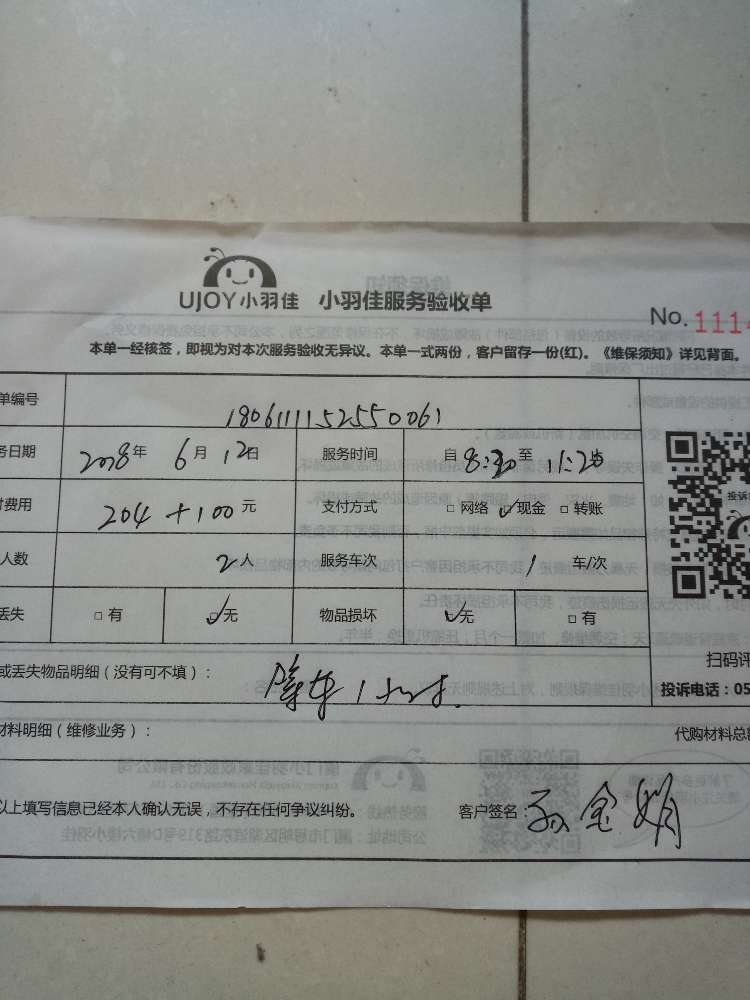 UJOY小羽佳 小羽佳服务验收单
No. 1114
本单一经核签，即视为对本次服务验收无异议。本单一式两份，客户留存一份(红)。《维保须知》详见背面。
单编号 180611152550061
务日期 2018年 6月 12日 服务时间 自 8:30 至 11:20
付费用 204 +100 元 支付方式 □ 网络 ☑ 现金 □ 转账
人数 2 人 服务车次 1 车/次
丢失 □ 有 ☑ 无 物品损坏 ☑ 无 □ 有
扫码评
或丢失物品明细（没有可不填）： 1小时.
投诉电话：05
材料明细（维修业务）： 代购材料总额
以上填写信息已经本人确认无误，不存在任何争议纠纷。 客户签名：孙金娟